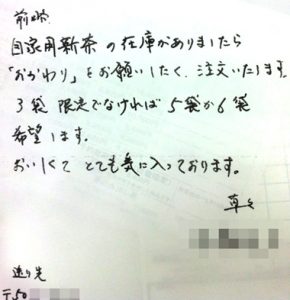 前略
自家用新茶の在庫がありましたら
「おかわり」をお願いしたく、ご注文いたします
3袋 限定でなければ 5袋か6袋
希望します。
おいしくて とても気に入っております。
草々
送り先
〒50